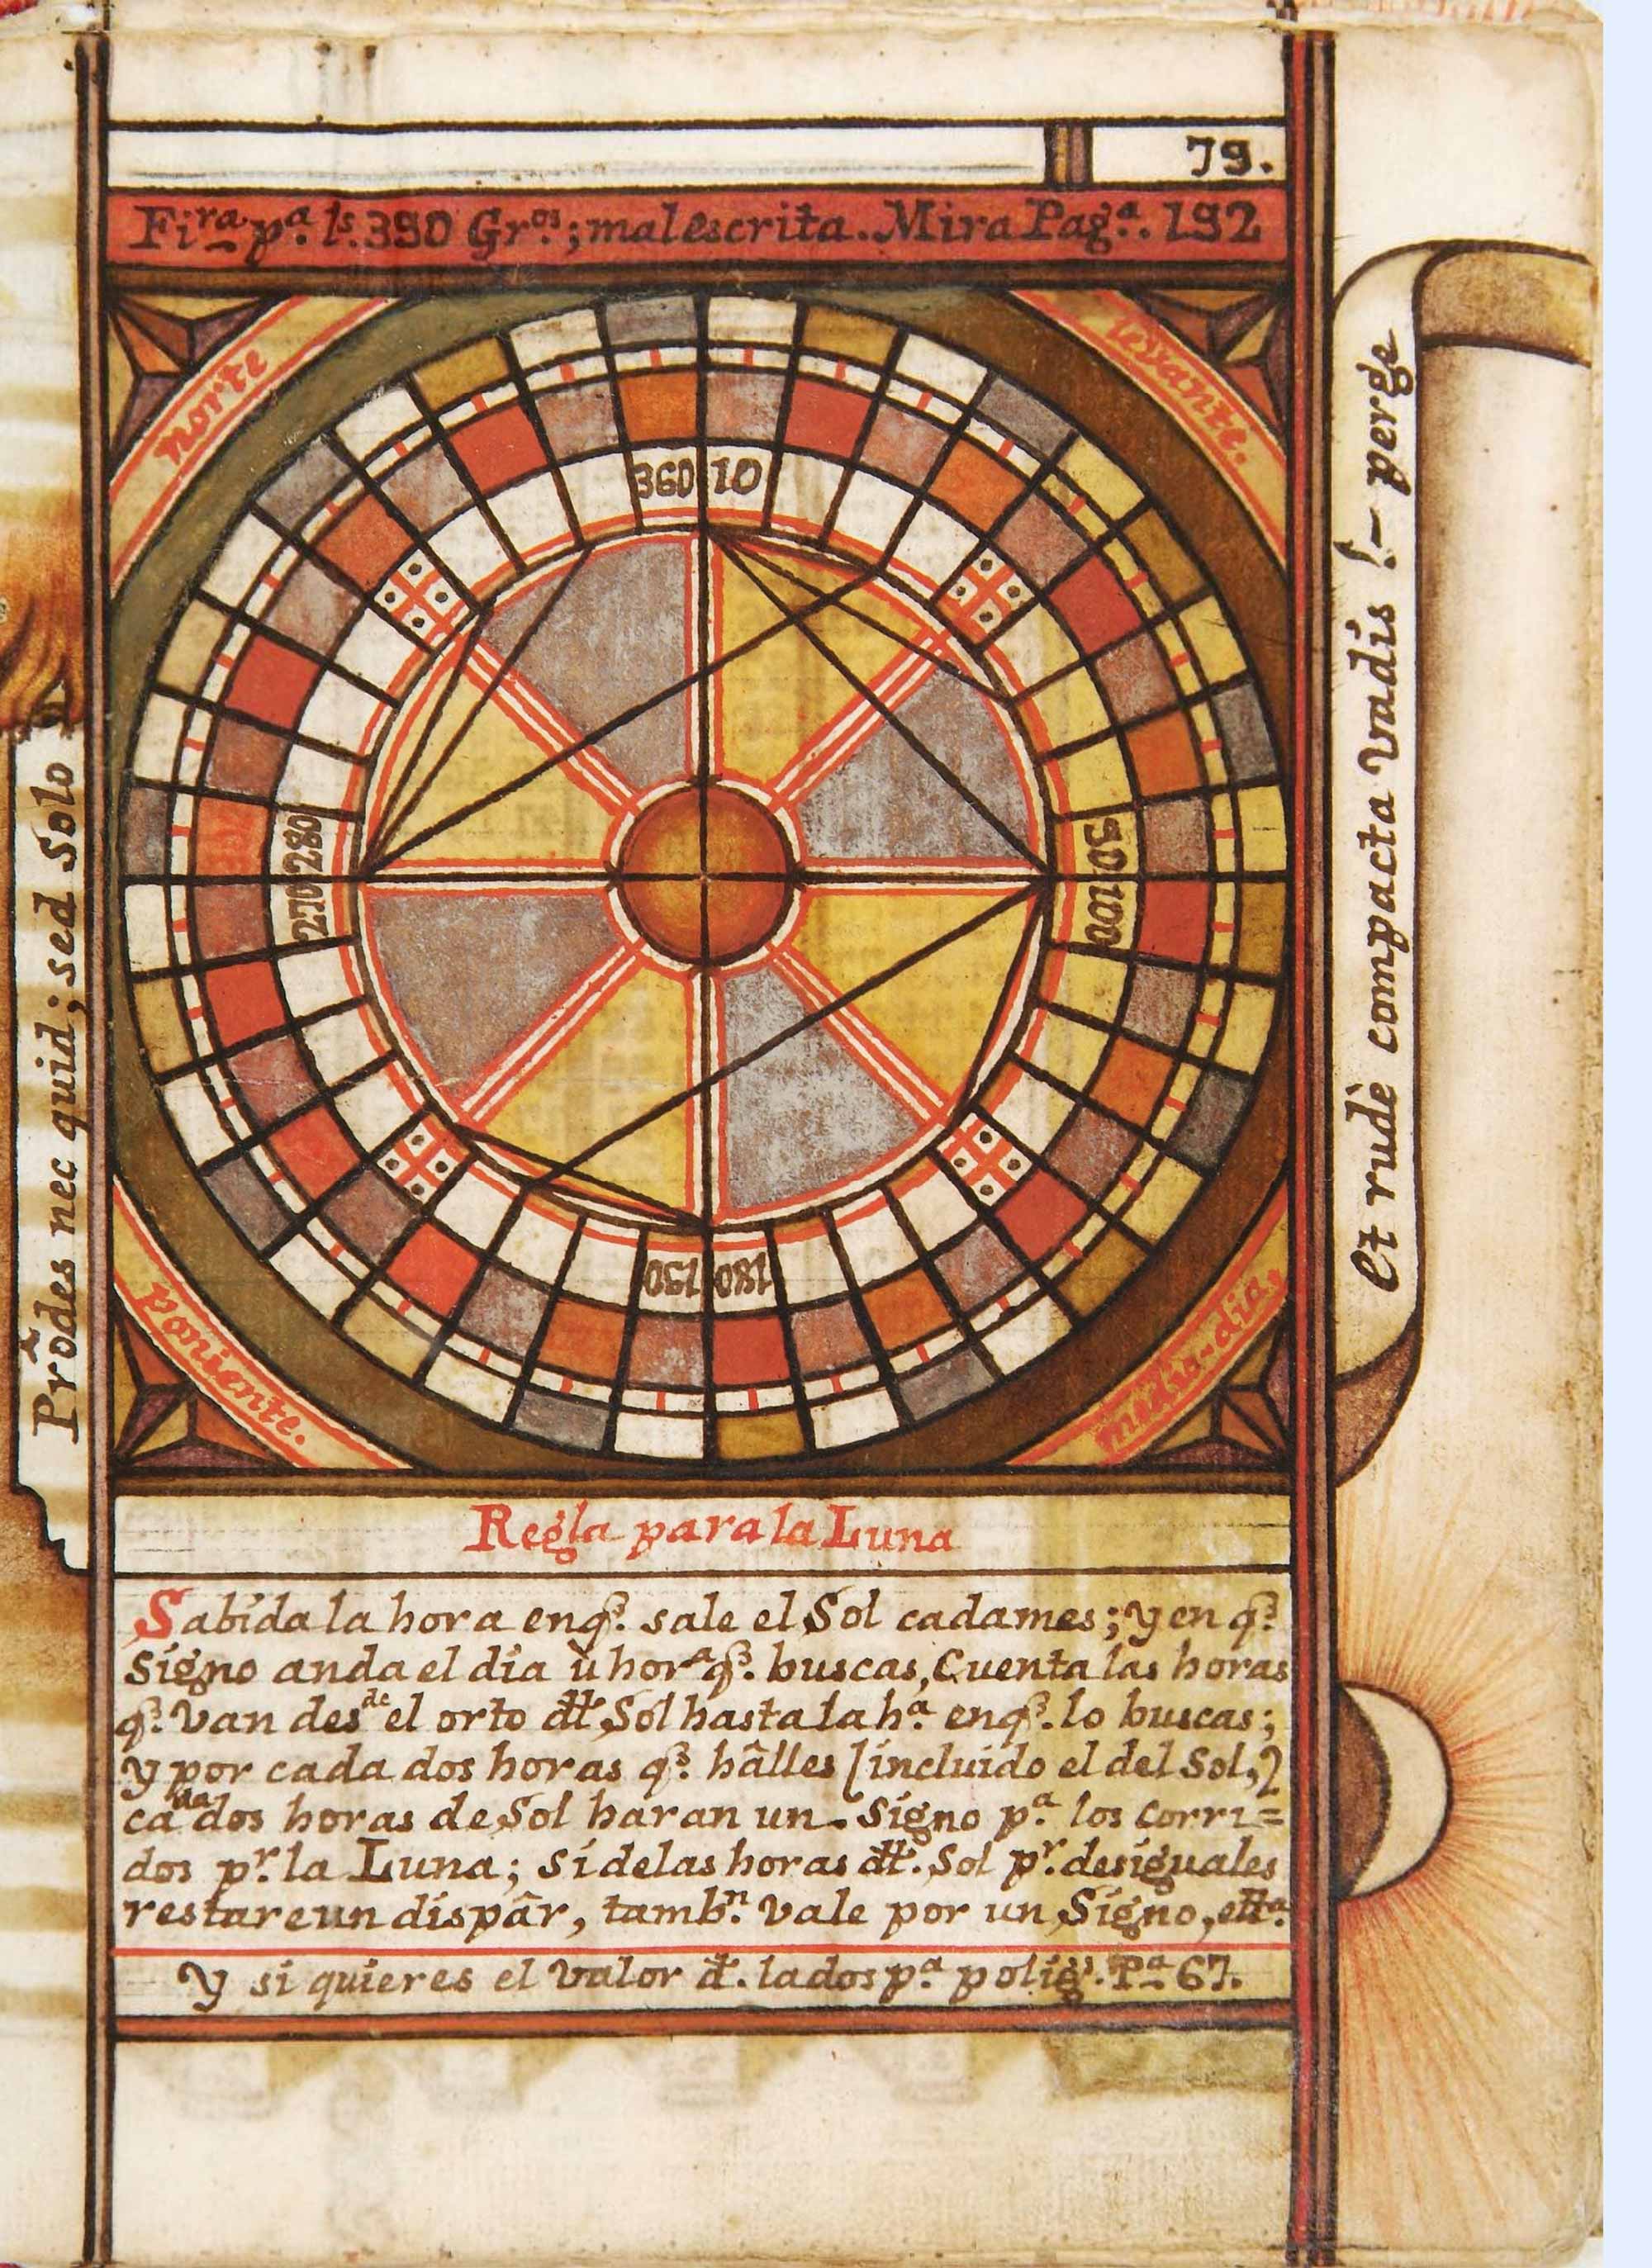 79.
Fi.ra p.a l.s 390 Gr.os; mal escrita. Mira Pag.a. 192
norte
levante.
360 10
270 280
90 100
190 180
poniente.
medio-dia.
Prõdes nec quid; sed solo
Et rudè compacta vadis !- perge
Regla para la Luna
Sabida la hora en q.e sale el Sol cada mes; y en q.e
Signo anda el dia ù hor.a q.e buscas, Cuenta las horas
q.e van desde el orto del Sol hasta la h.a en q.e lo buscas;
y por cada dos horas q.e hâlles [incluido el del Sol,]
cada dos horas de Sol haran un Signo p.a los corri=
dos p.r la Luna; si de las horas del Sol p.r desiguales
restare un dispâr, tamb.n vale por un Signo, ett.a
Y si quieres el valor d. lados p.a polig.s P.a 67.